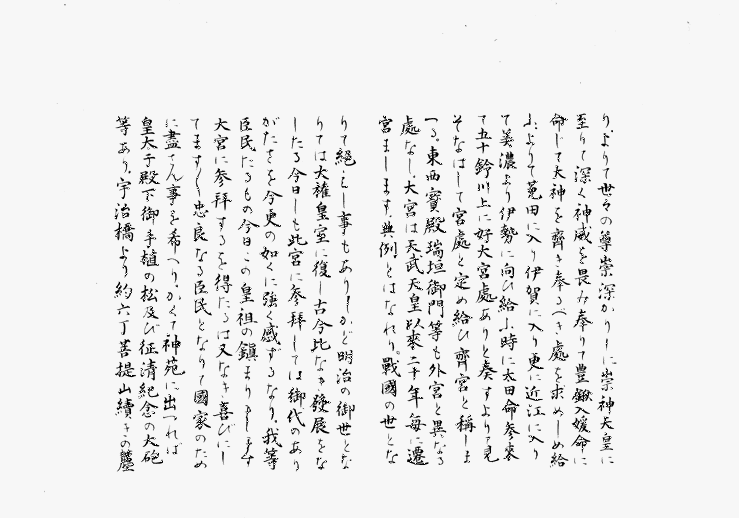 り、よりて世々の尊崇深かりしに崇神天皇に
至りて深く神威を畏み奉りて豊鍬入媛命に
命じて大神を齊き奉るべき處を求めしめ給
ふ、よりて莵田に入り伊賀に入り更に近江に入り
て美濃より伊勢に向ひ給ふ時に太田命参来
て五十鈴川上に好大宮處ありと奏すより見
そなはして宮處と定め給ひ齊宮と稱しま
つる。東西寳殿瑞垣御門等も外宮と異なる
處なし、大宮は天武天皇以來二十年毎に遷
宮まします、典例とはなれり。戰國の世とな
りて絶えし事もありしかど明治の御世とな
りては大權皇室に復し古今比なき發展をな
したる今日しも此宮に参拜しては御代のあり
がたさを今更の如くに強く感ずるなり、我等
臣民たるもの今日この皇祖の鎭まりまします
大宮に参拜するを得たるは又なき喜びにし
てます〱忠良なる臣民となりて國家のため
に盡さん事を希へり、かくて神苑に出づれば
皇太子殿下御手植の松及び征清紀念の大砲
等あり、宇治橋より約六丁菩提山續きの麓